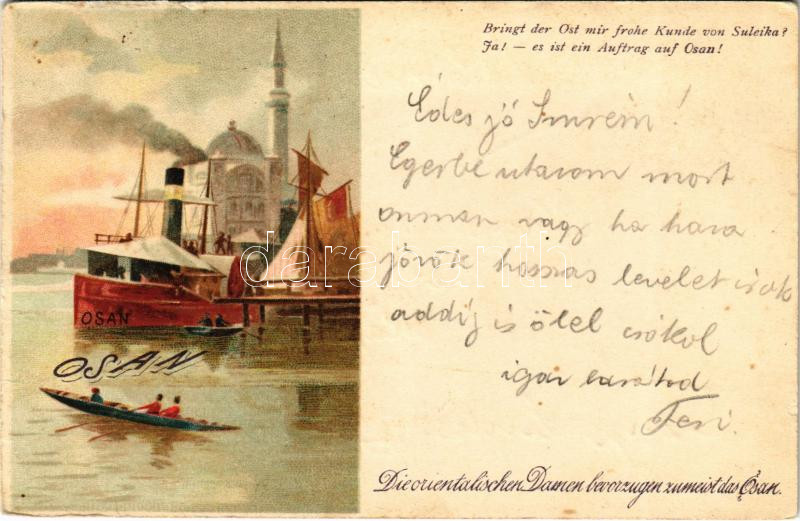 Bringt der Ost mir frohe Kunde von Suleika?
Ja! — es ist ein Auftrag auf Osan!
Édes jó Imrém!
Egerbe utazom most
onnan vagy ha haza
jövök hosszas levelet irok
addig is ölel csókol
igaz barátod
Feri.
OSAN
OSAN
darabanth
Die orientalischen Damen bevorzugen zumeist das Osan.